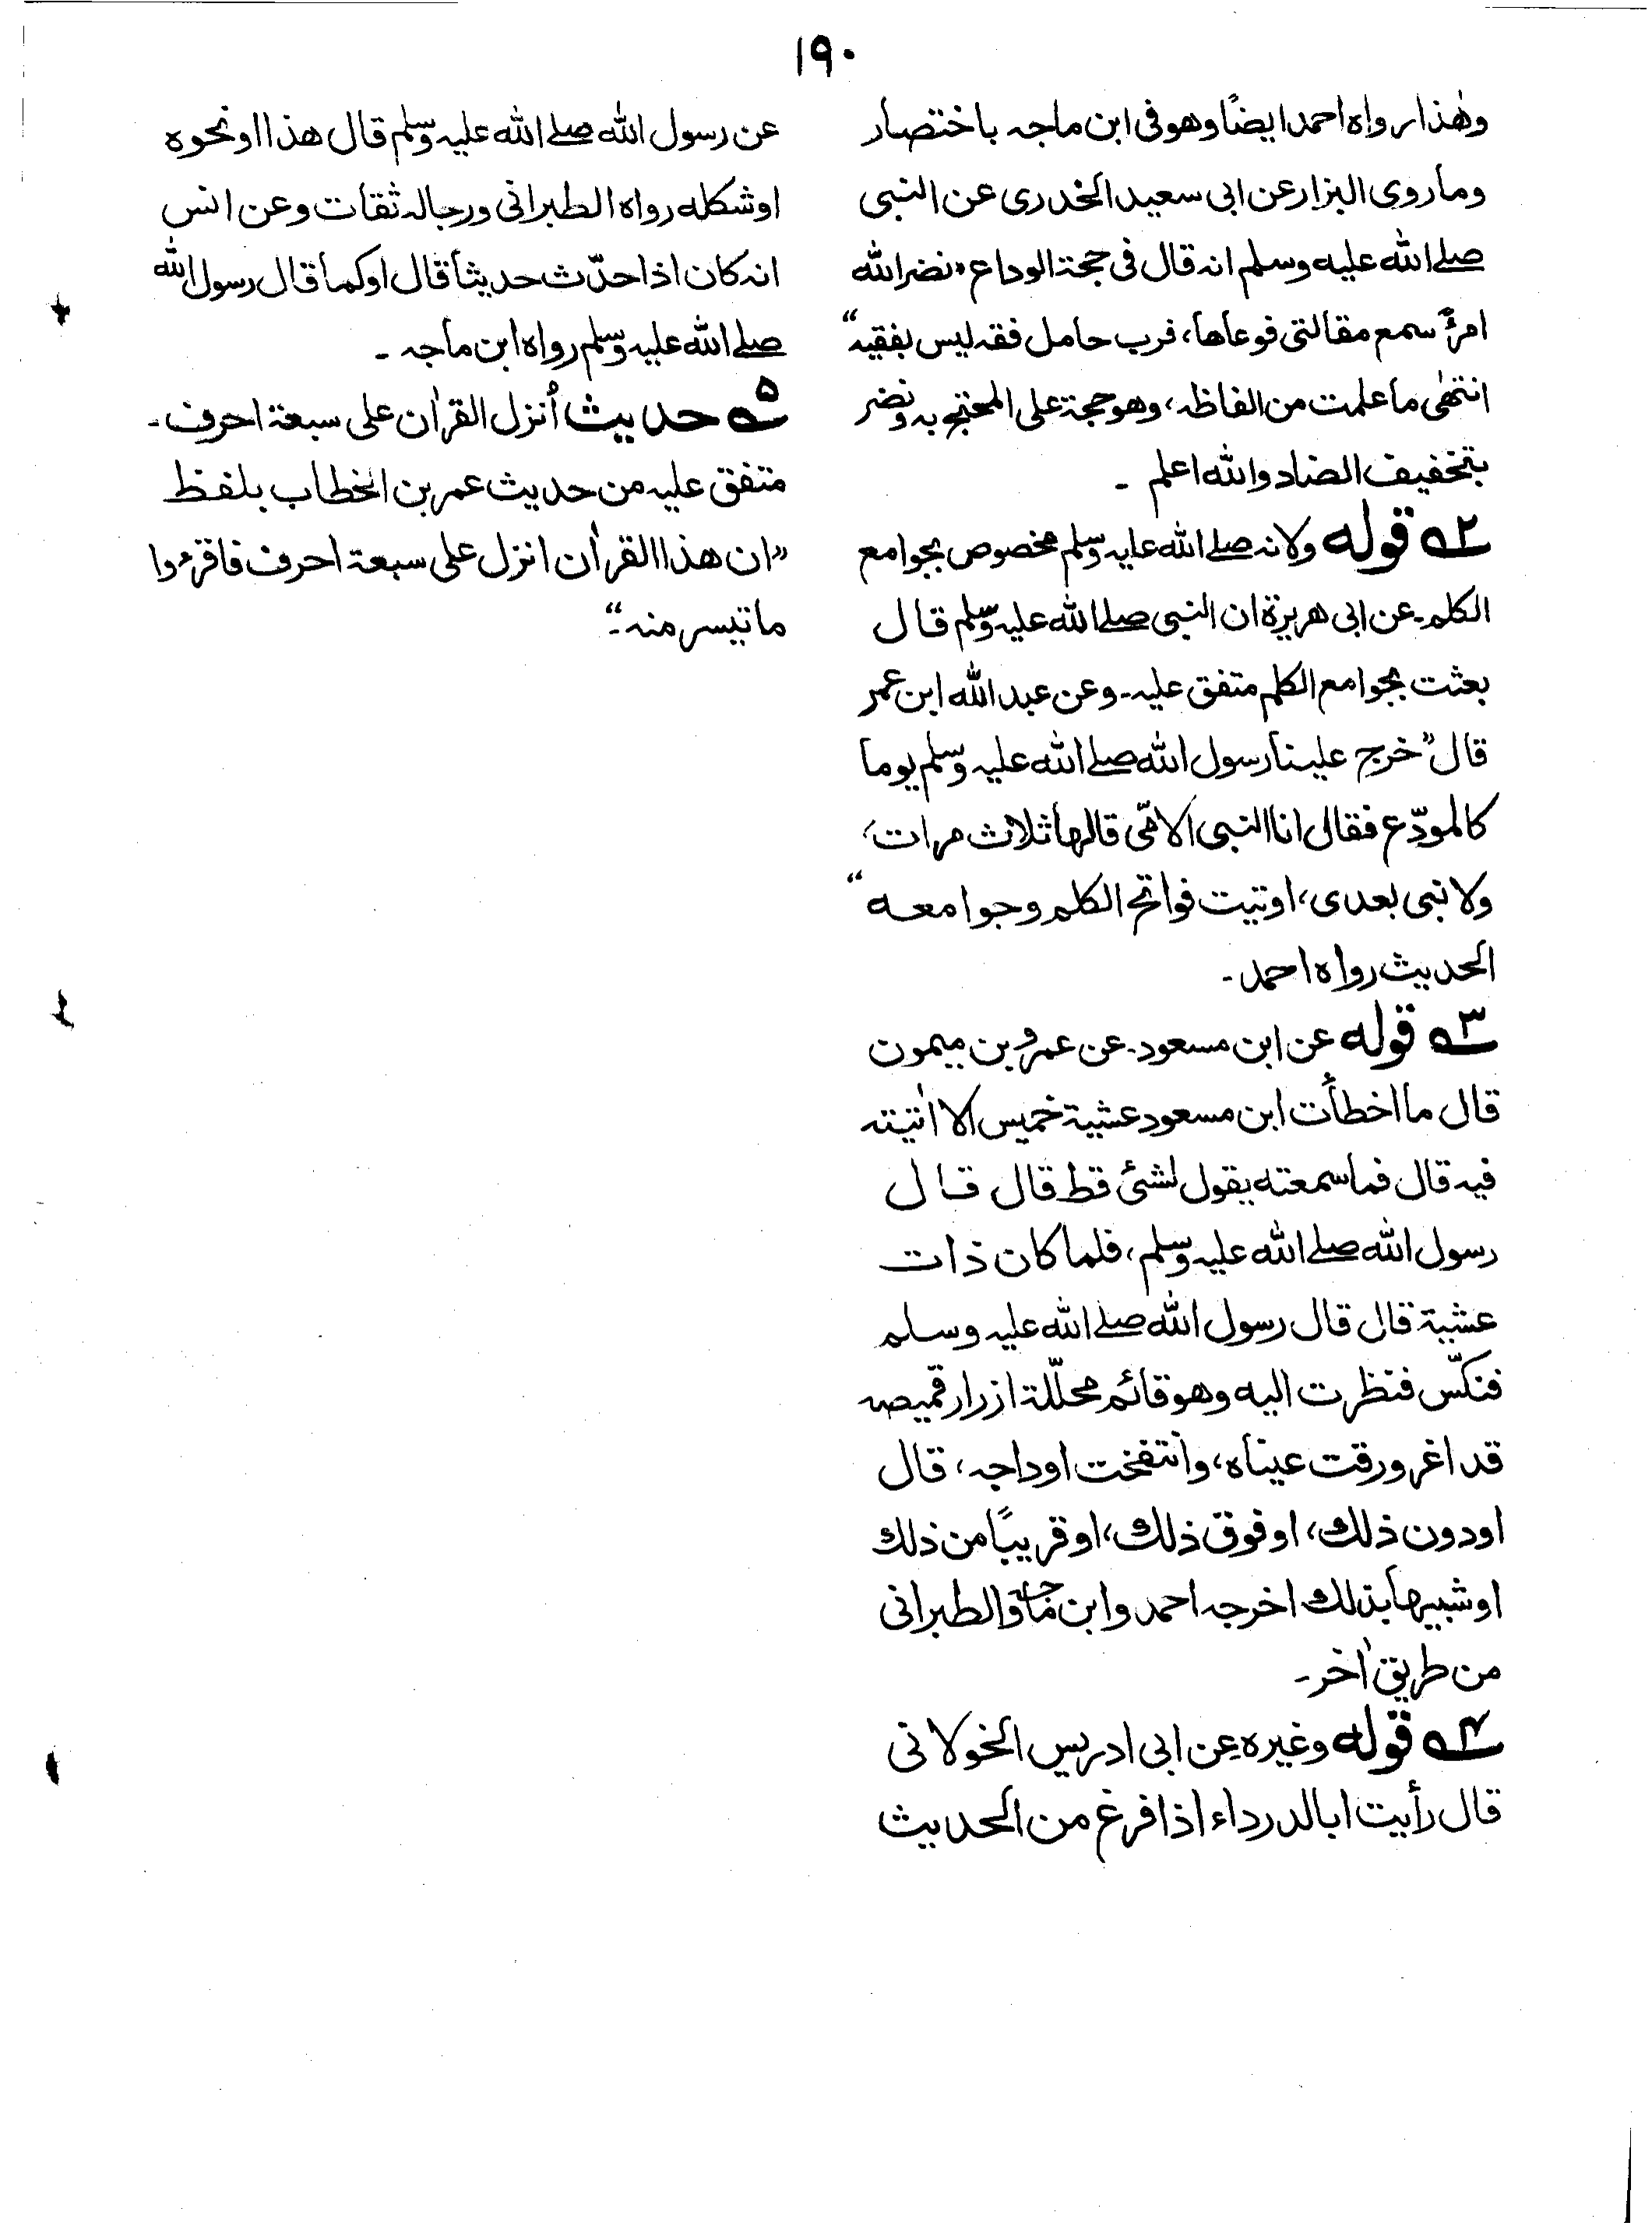 ١٩٠
وهٰذا رواه احمد ايضًا وهو فى ابن ماجه باختصار
وما روى البزار عن ابى سعيد الخدرى عن النبى
صلے الله عليه وسلم انه قال فى حجة الوداع "نضر الله
امرءً سمع مقالتى فوعاها، فرب حامل فقه ليس بفقيه"
انتهٰى ما علمت من الفاظه، وهو حجة على المحتج به ونضر
بتخفيف الضاد والله اعلم ـ
٢ قوله ولانه صلے الله عليه وسلم مخصوص بجوامع
الكلم ـ عن ابى هريرة ان النبى صلے الله عليه وسلم قال
بعثت بجوامع الكلم متفق عليه ـ وعن عبد الله ابن عمر
قال "خرج علينا رسول الله صلے الله عليه وسلم يوما
كالمودّع فقال انا النبى الامّى قالها ثلاث مرات،
ولا نبى بعدى، اوتيت فواتح الكلم وجوامعه"
الحديث رواه احمد ـ
٣ قوله عن ابن مسعود ـ عن عمرو بن ميمون
قال ما اخطأت ابن مسعود عشية خميس الا اٰتيته
فيه قال فما سمعته يقول لشئ قط قال قال
رسول الله صلے الله عليه وسلم، فلما كان ذات
عشية قال قال رسول الله صلے الله عليه وسلم
فنكّس فنظرت اليه وهو قائم محلّلة ازرار قميصه
قد اغرورقت عيناه، وانتفخت اوداجه، قال
اودون ذلك، اوفوق ذلك، اوقريبًا من ذلك
اوشبيها بذلك اخرجه احمد وابن ماجة والطبرانى
من طريق اٰخر ـ
٤ قوله وغيره عن ابى ادريس الخولانى
قال رأيت ابا الدرداء اذا فرغ من الحديث
عن رسول الله صلے الله عليه وسلم قال هذا اونحوه
اوشكله رواه الطبرانى ورجاله ثقات وعن انس
انه كان اذا حدّث حديثا قال اوكما قال رسول الله
صلے الله عليه وسلم رواه ابن ماجه ـ
۵ حديث اُنزل القراٰن على سبعة احرف ـ
متفق عليه من حديث عمر بن الخطاب بلفظ
"ان هذا القراٰن انزل على سبعة احرف فاقرءوا
ما تيسر منه ـ"